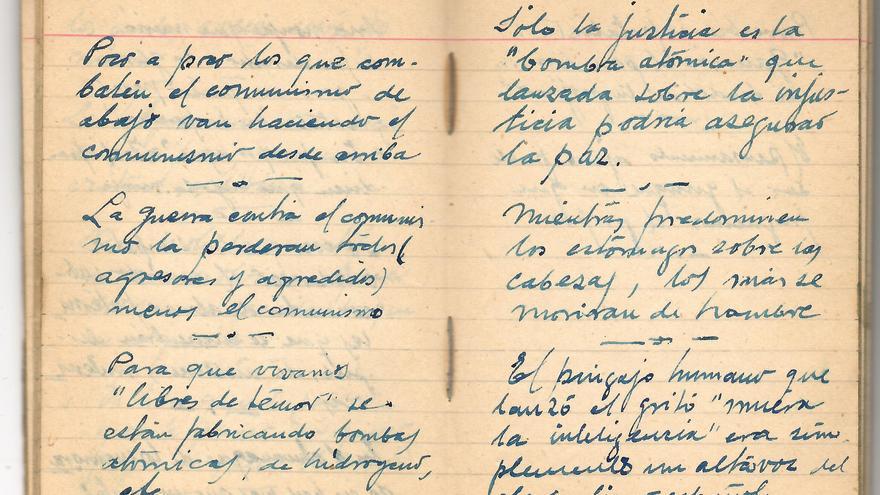 Poco a poco los que com-
baten el comunismo de
abajo van haciendo el
comunismo desde arriba
La guerra contra el comunis
mo la perderan todos (
agresores y agredidos)
menos el comunismo
Para que vivamos
"libres de temor" se
están fabricando bombas
atomicas, de hidrogeno,
Sólo la justicia es la
"bomba atómica" que
lanzada sobre la injus-
ticia podria asegurar
la paz.
Mientras predominen
los estómagos sobre las
cabezas, los más se
moriran de hambre
El pingajo humano que
lanzó el gritó "muera
la inteligencia" era sim-
plemente un altavoz del